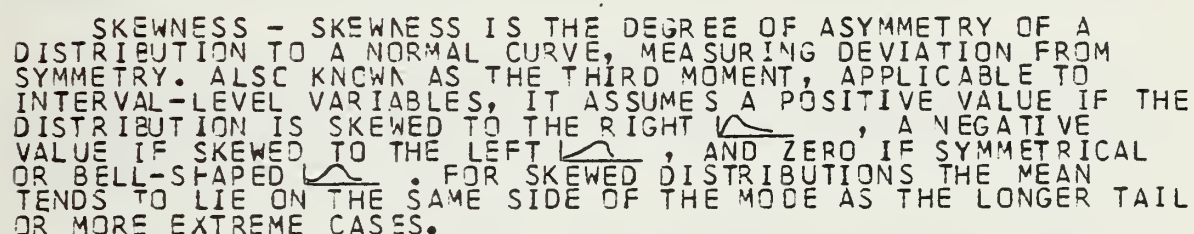 SKEWNESS - SKEWNESS IS THE DEGREE OF ASYMMETRY OF A
DISTRIBUTION TO A NORMAL CURVE, MEASURING DEVIATION FROM
SYMMETRY. ALSO KNOWN AS THE THIRD MOMENT, APPLICABLE TO
INTERVAL-LEVEL VARIABLES, IT ASSUMES A POSITIVE VALUE IF THE
DISTRIBUTION IS SKEWED TO THE RIGHT , A NEGATIVE
VALUE IF SKEWED TO THE LEFT , AND ZERO IF SYMMETRICAL
OR BELL-SHAPED . FOR SKEWED DISTRIBUTIONS THE MEAN
TENDS TO LIE ON THE SAME SIDE OF THE MODE AS THE LONGER TAIL
OR MORE EXTREME CASES.